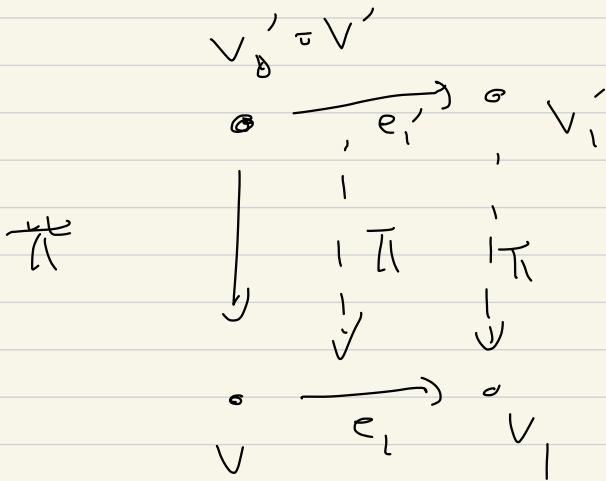 V₀' = V'
e₁' V₁'
π π π
e₁
V V₁